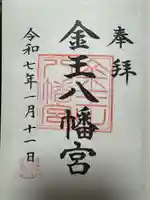 奉拝
金王八幡宮
令和七年一月十一日